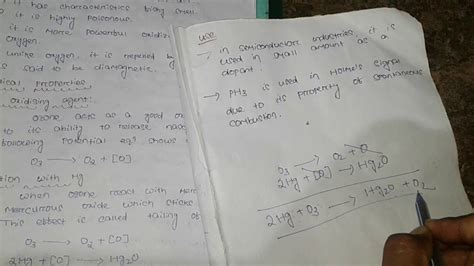 It has characteristics fishy smell.
it is highly poisonous.
it is More powerful oxidizi
oxygen.
unlike oxygen, it is repened by
is said to be diamagnetic.
ical properties
oxidizing agent:
ozone acts as a good ox
to its ability to release nasc
following potential eqn shows i
O3 → O2 + [O]
tion with Hg
when ozone react with Merc
Mercurous oxide which sticks
This effect is called tailing of
O3 → O2 + [O]
2Hg + [O] → Hg2O
use
→ in semiconductors industries, it is
used in small amount as a
dopant.
→ PH3 is used in Holme's signal
due to its property of spontaneous
combustion.
O3 → O2 + O
2Hg + [O] → Hg2O
2Hg + O3 → Hg2O + O2